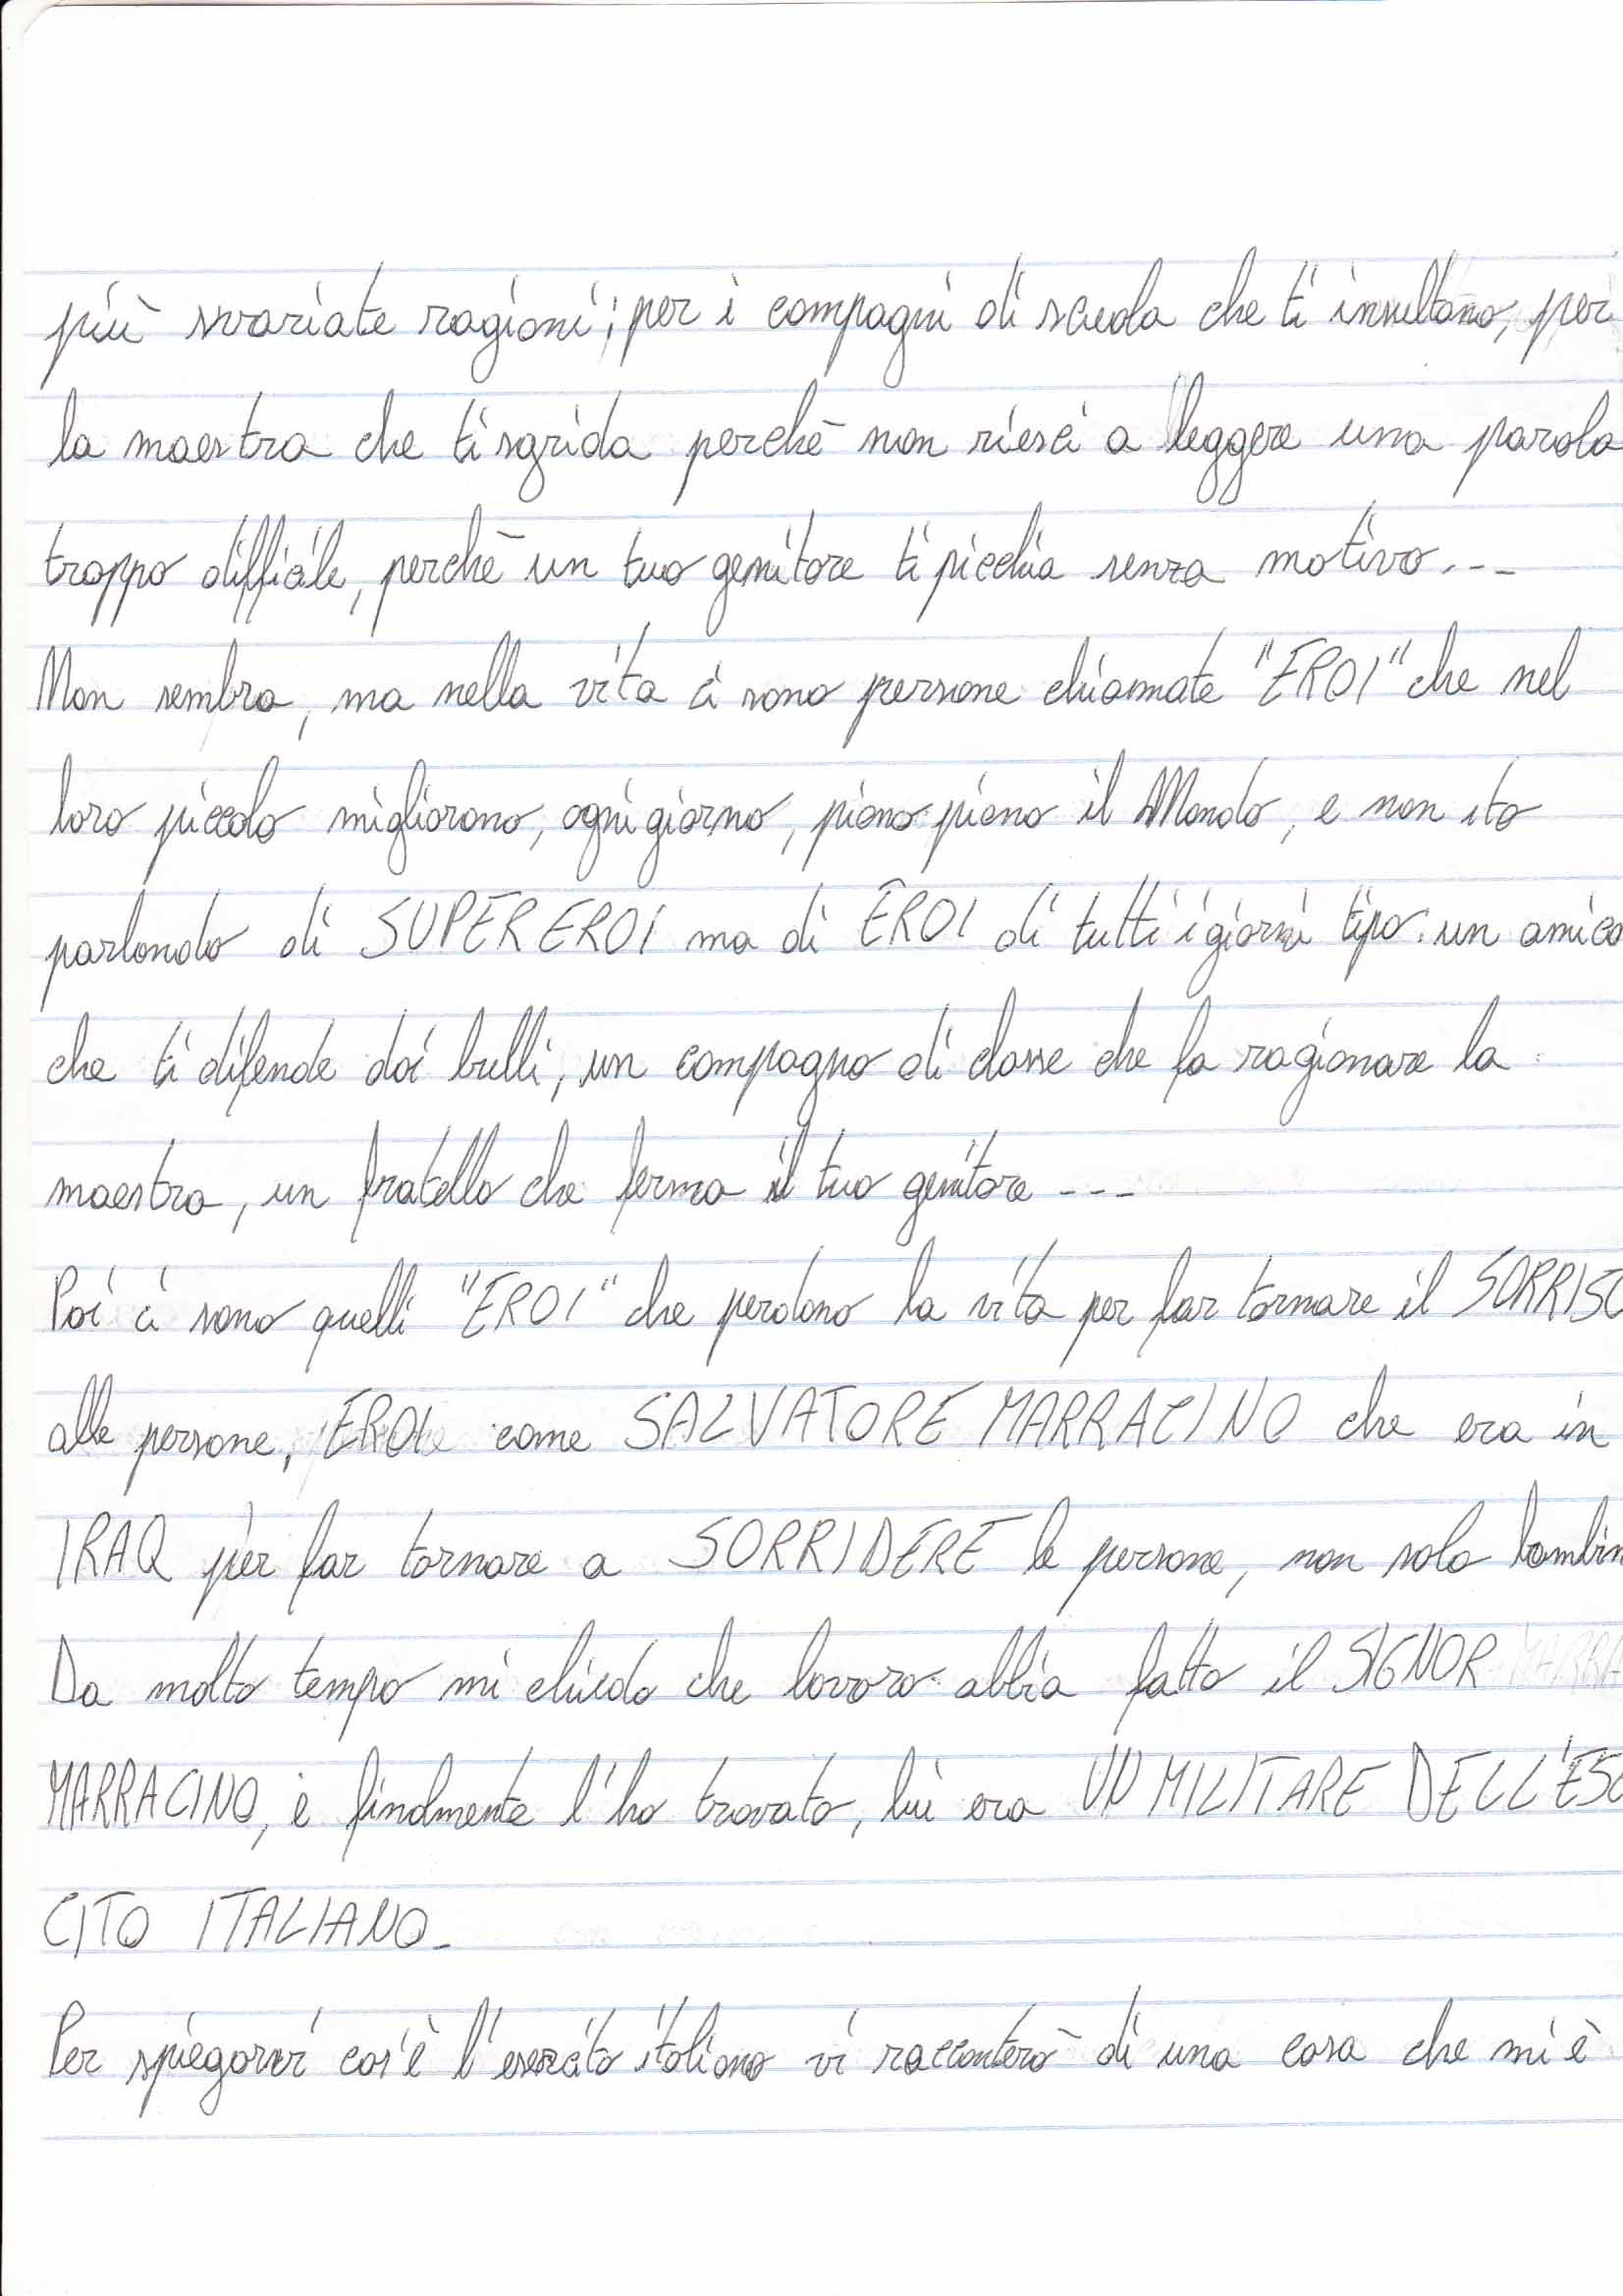 più svariate ragioni; per i compagni di scuola che ti insultano, per
la maestra che ti sgrida perchè non riesci a leggere una parola
troppo difficile, perchè un tuo genitore ti picchia senza motivo...
Non sembra, ma nella vita ci sono persone chiamate "EROI" che nel
loro piccolo migliorano, ogni giorno, piano piano il Mondo, e non sto
parlando di SUPER EROI ma di EROI di tutti i giorni tipo: un amico
che ti difende dai bulli, un compagno di classe che fa ragionare la
maestra, un fratello che ferma il tuo genitore ---
Poi ci sono quelli "EROI" che perdono la vita per far tornare il SORRISO
alle persone, EROI come SALVATORE MARRACINO che era in
IRAQ per far tornare a SORRIDERE le persone, non solo bambin
Da molto tempo mi chiedo che lavoro abbia fatto il SIGNOR
MARRACINO, e finalmente l'ho trovato, lui era UN MILITARE DELL'ESE
CITO ITALIANO.
Per spiegarvi cos'è l'esercito italiano vi racconterò di una cosa che mi è